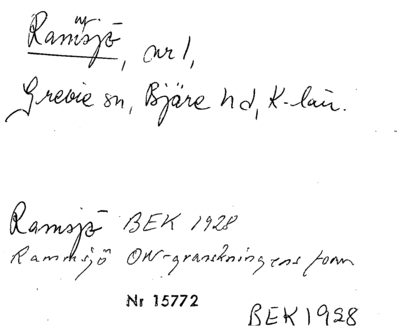 Ramsjö, nr 1,
Grevie sn, Bjäre hd, K-län.
Ramsjö BEK 1928
Rammsjö ON-granskningens form
Nr 15772
BEK 1928